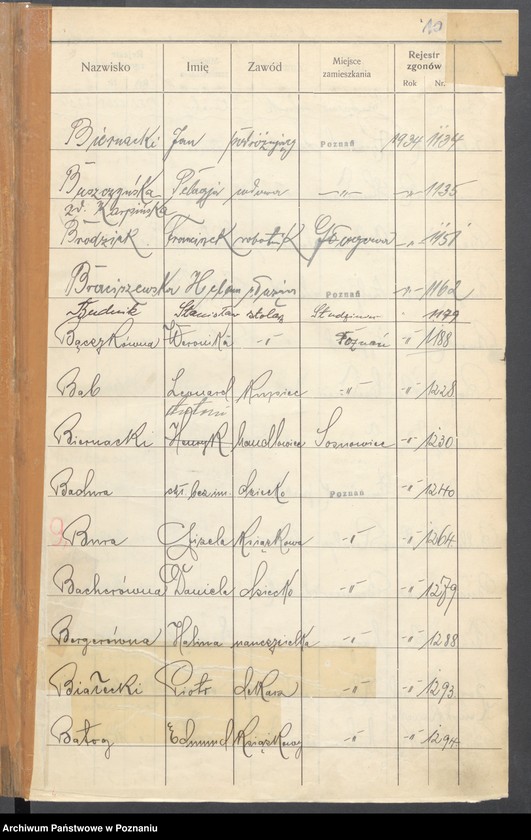 10
Nazwisko Imię Zawód Miejsce zamieszkania Rejestr zgonów
Rok Nr.
Biernacki Jan podróżujący Poznań 1934 1134
Buszczyńska Pelagja wdowa -"- -"- 1135
zd. Karpińska
Brodziak Franciszek robotnik -"- 1151
Braciszewska Helena Poznań -"- 1162
Budnik Stanisław stolarz 1179
Bączkówna Weronika -"- Poznań -"- 1188
Bąb Leonard Kupiec -"- -"- 1228
Antoni
Biernacki Henryk handlowiec Sosnowiec -"- 1230
Badura dziecko Poznań -"- 1240
9. Bura Gizela Książkowa -"- -"- 1264
Bacherówna Daniela dziecko -"- -"- 1279
Bergerówna Halina nauczycielka -"- -"- 1288
Białecki Piotr -"- -"- 1293
Batog Edmund Książkowy -"- -"- 1294
Archiwum Państwowe w Poznaniu